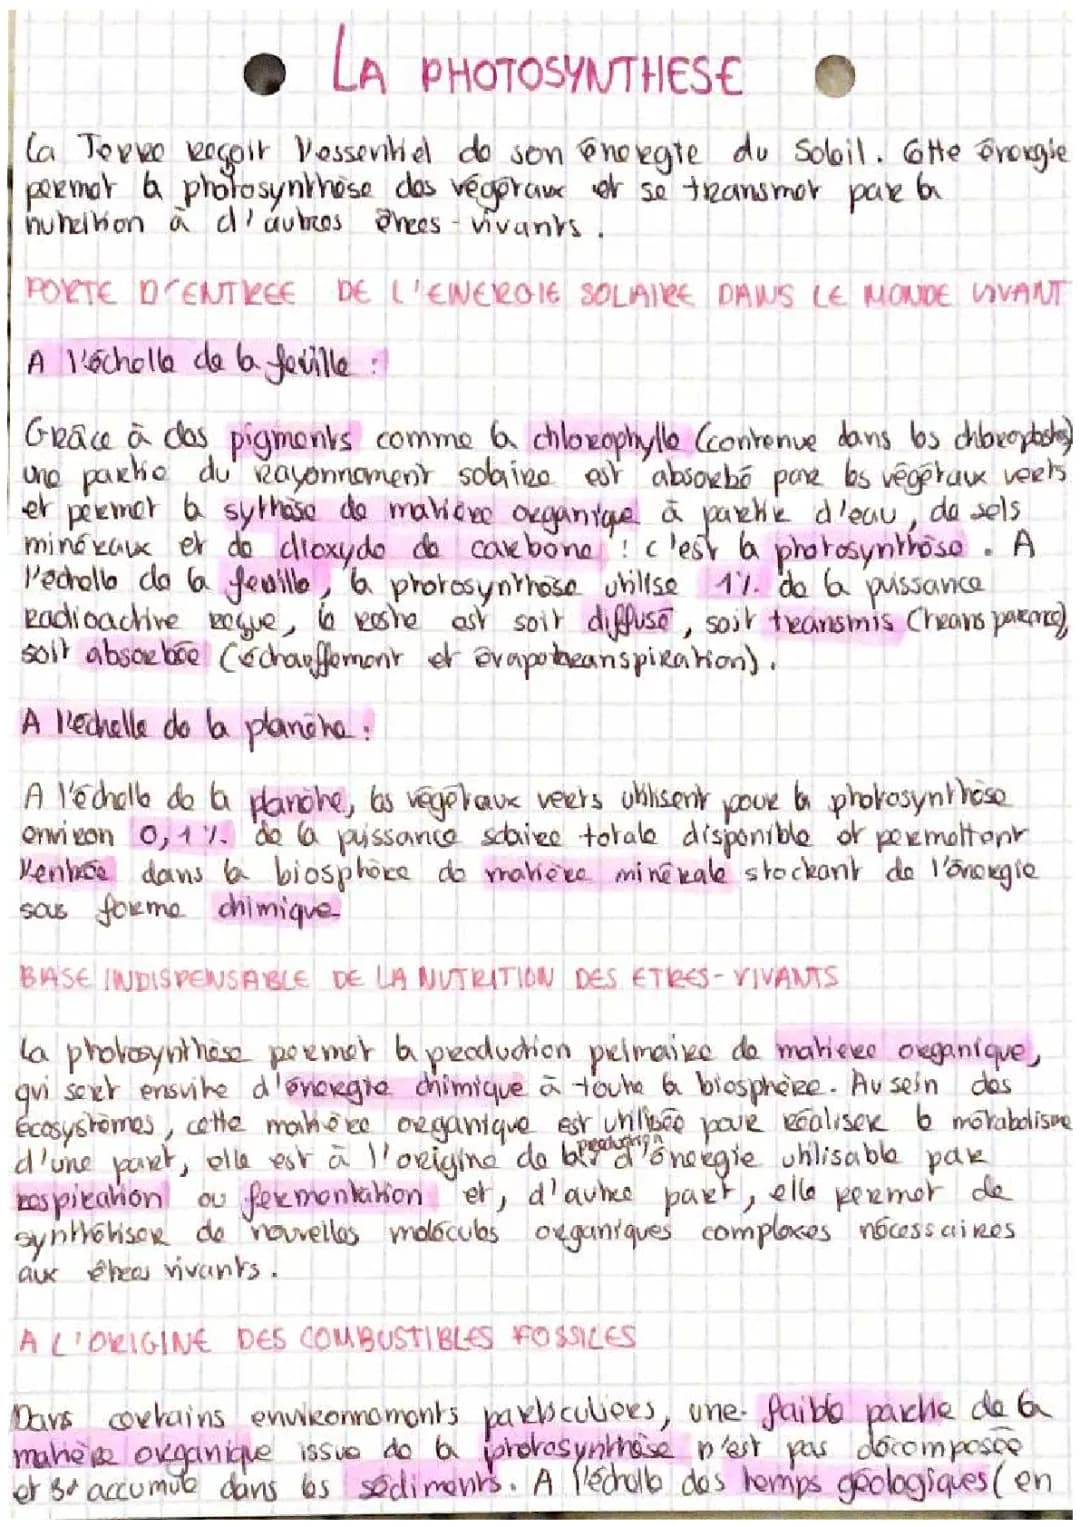 LA PHOTOSYNTHESE
La Terre reçoit l'essentiel de son énergie du Soleil. Cette énergie
permet la photosynthèse des végétaux et se transmet par la
nutrition à d'autres êtres-vivants.
PORTE D'ENTREE DE L'ENERGIE SOLAIRE DANS LE MONDE VIVANT
A l'échelle de la feuille :
Grâce à des pigments comme la chlorophylle (contenue dans les chloroplastes)
une partie du rayonnement solaire est absorbé par les végétaux verts
et permet la sythèse de matière organique à partir d'eau, de sels
minéraux et de dioxyde de carbone : c'est la photosynthèse. A
l'échelle de la feuille, la photosynthèse utilise 1% de la puissance
radioactive reçue, le reste est soit diffusé, soit transmis (transparence),
soit absorbée (échauffement et évapotranspiration).
A l'échelle de la planète :
A l'échelle de la planète, les végétaux verts utilisent pour la photosynthèse
environ 0,1% de la puissance solaire totale disponible et permettent
l'entrée dans la biosphère de matière minérale stockant de l'énergie
sous forme chimique
BASE INDISPENSABLE DE LA NUTRITION DES ETRES-VIVANTS
La photosynthèse permet la production primaire de matière organique,
qui sert ensuite d'énergie chimique à toute la biosphère. Au sein des
écosystèmes, cette matière organique est utilisée pour réaliser le métabolisme
d'une part, elle est à l'origine de la production d'énergie utilisable par
respiration ou fermentation et, d'autre part, elle permet de
synthétiser de nouvelles molécules organiques complexes nécessaires
aux êtres vivants.
A L'ORIGINE DES COMBUSTIBLES FOSSILES
Dans certains environnements particuliers, une faible partie de la
matière organique issue de la photosynthèse n'est pas décomposée
et s'accumule dans les sédiments. A l'échelle des temps géologiques (en